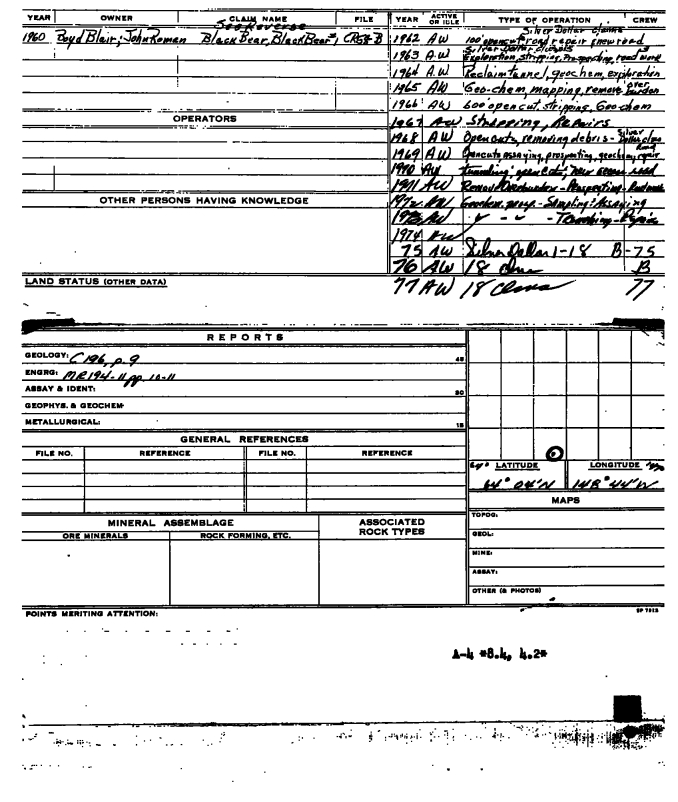 YEAR OWNER CLAIM NAME FILE YEAR ACTIVE OR IDLE TYPE OF OPERATION CREW
See Reverse
Silver Dollar Claims
1960 Boyd Blair; John Roman Black Bear, Black Bear #1, CR58-B 1962 AW 100' opencut road repair & new road
Silver Dollar Claims
1963 AW Exploration, Stripping, Prospecting, road work 3
1964 A.W Reclaim tunnel, geochem, exploration
1965 AW Geo-chem, mapping, remove over burden
1966 AW 600 open cut, stripping, Geo-chem
OPERATORS 1967 AW Stripping, Repairs
1968 AW Opencuts, removing debris - Silver Dollar claim Road
1969 AW Opencuts, assaying, prospecting, geochem, repair
1970 AW tunneling, open cuts, new access road
1971 AW Remov Overburden - Prospecting - Roadwork
OTHER PERSONS HAVING KNOWLEDGE 1972 AW Geochem. - Sampling: Assaying
1973 AW " - " - Trenching - Repair
1974 AW
75 AW Silver Dollar 1-18 B-75
76 AW 18 clms B
LAND STATUS (OTHER DATA) 77 AW 18 Clms 77
REPORTS
GEOLOGY: C 196, p. 9 45
ENGRG: MR194-11 pp. 10-11
ASSAY & IDENT: 30
GEOPHYS. & GEOCHEM:
METALLURGICAL: 15
GENERAL REFERENCES
FILE NO. REFERENCE FILE NO. REFERENCE
64° LATITUDE LONGITUDE
64° 04'N 148° 44'W
MAPS
MINERAL ASSEMBLAGE ASSOCIATED ROCK TYPES TOPOG:
ORE MINERALS ROCK FORMING, ETC. GEOL:
MINE:
ASSAY:
OTHER (& PHOTOS)
POINTS MERITING ATTENTION:
A-4 *8.4, 4.2*